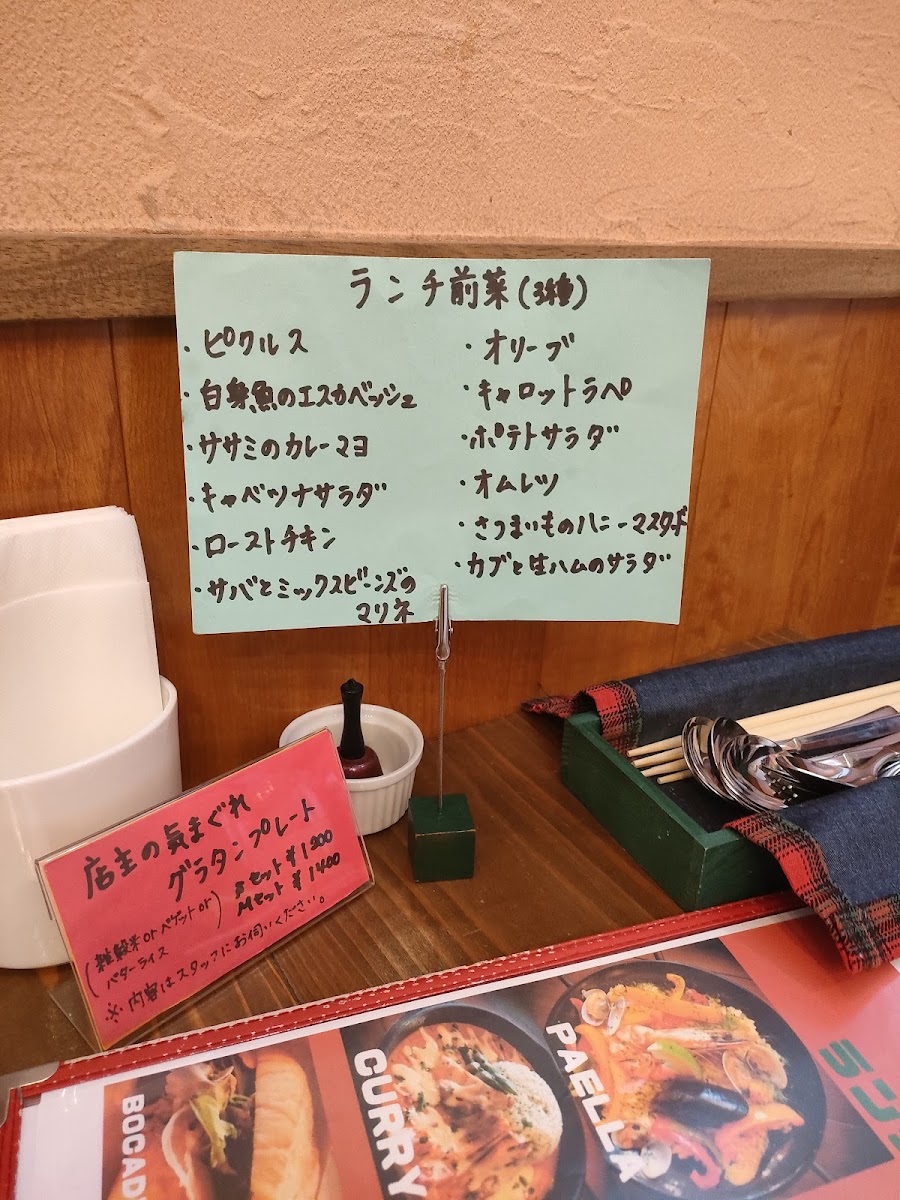 ランチ前菜(3種)
・ピクルス
・白身魚のエスカベッシュ
・ササミのカレーマヨ
・キャベツナサラダ
・ローストチキン
・サバとミックスビーンズの
マリネ
・オリーブ
・キャロットラペ
・ポテトサラダ
・オムレツ
・さつまいものハニーマスタード
・カブと生ハムのサラダ
店主の気まぐれ
グラタンプレート
(雑穀米orバゲットor
バターライス)
セット ¥1200
Mセット ¥1400
※内容はスタッフにお伺いください。
BOCAD
CURRY
PAELLA
ラン